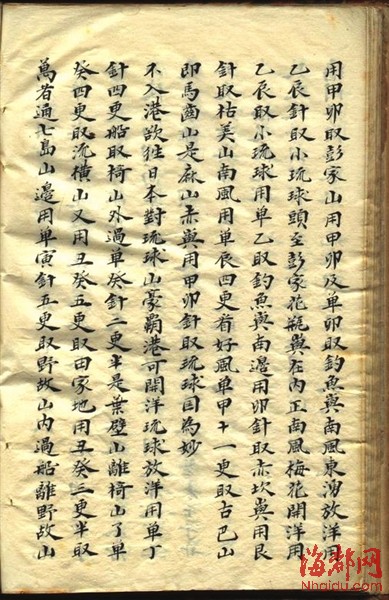 用甲卯取彭家山用甲卯及单卯取釣魚嶼南風東湧放洋用
乙辰針取小琉球頭至彭家花瓶嶼在内正南風梅花開洋用
乙辰取小琉球用单乙取釣魚嶼南邊用卯針取赤坎嶼用艮
針取枯美山南風用单辰四更看好風单甲十一更取古巴山
即馬齒山是麻山赤嶼用甲卯針取琉球國為妙
不入港欲往日本對琉球山豪霸港可開洋琉球放洋用单丁
針四更船取椅山外過单癸針二更半是葉壁山離椅山了单
癸四更取流横山又用丑癸五更取田家地用丑癸三更半取
萬者通七島山邊用单寅針五更取野故山内過船離野故山
海都网
Nhaidu.com